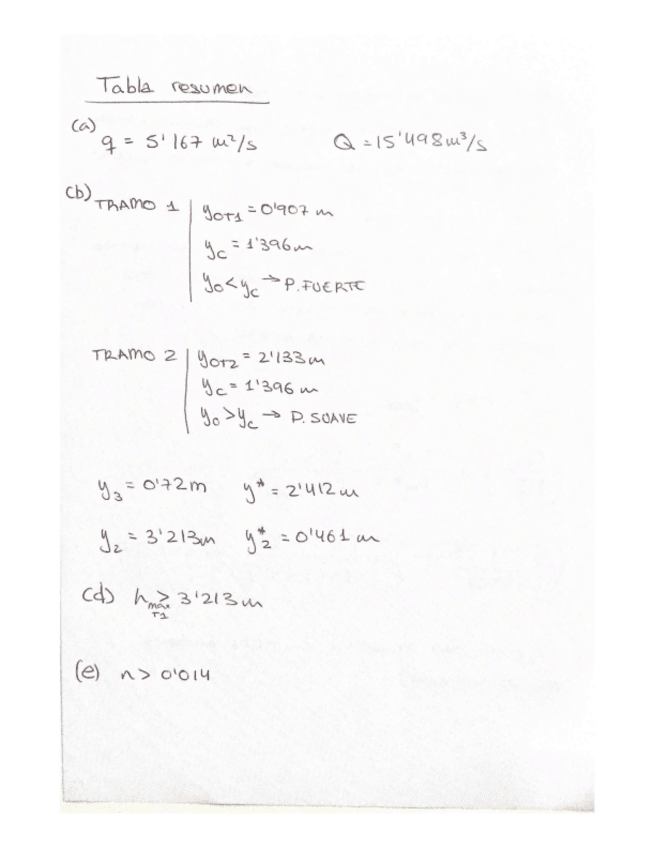 Tabla resumen
(a)
q = 5'167 m²/s Q = 15'498 m³/s
(b) TRAMO 1 y₀T1 = 0'907 m
yc = 1'396 m
y₀ < yc → P. FUERTE
TRAMO 2 y₀T2 = 2'133 m
yc = 1'396 m
y₀ > yc → P. SUAVE
y₃ = 0'72 m y* = 2'412 m
y₂ = 3'213 m y₂* = 0'461 m
(d) h max T1 ≥ 3'213 m
(e) n > 0'014